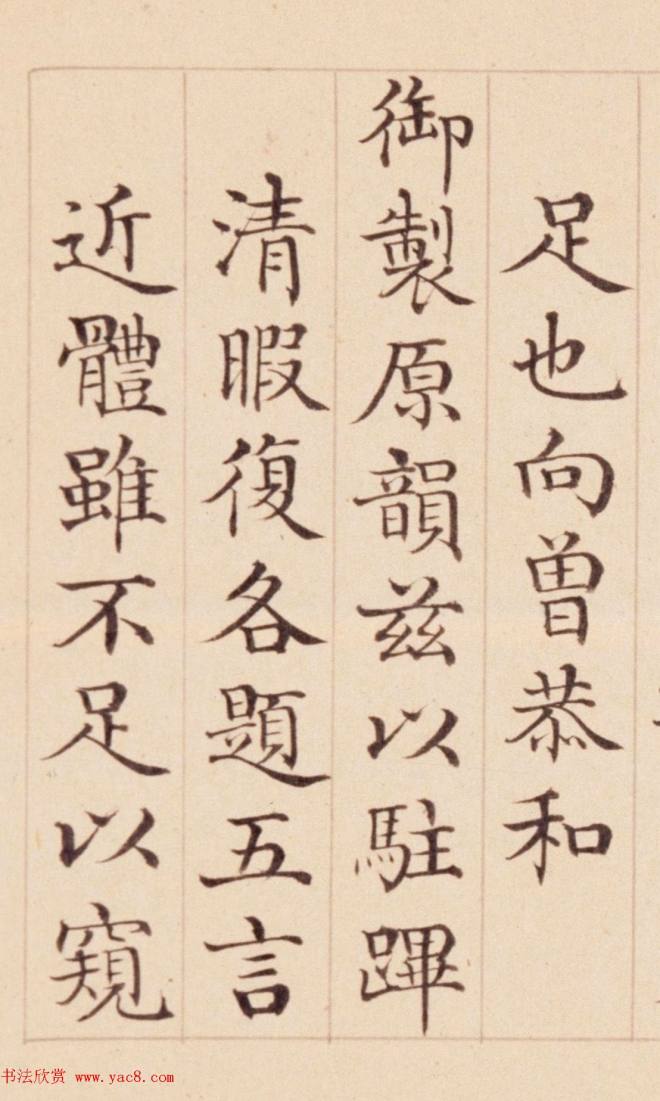 足也向曾恭和
御製原韻兹以駐蹕
清暇復各題五言
近體雖不足以窺
书法欣赏 www.yac8.com